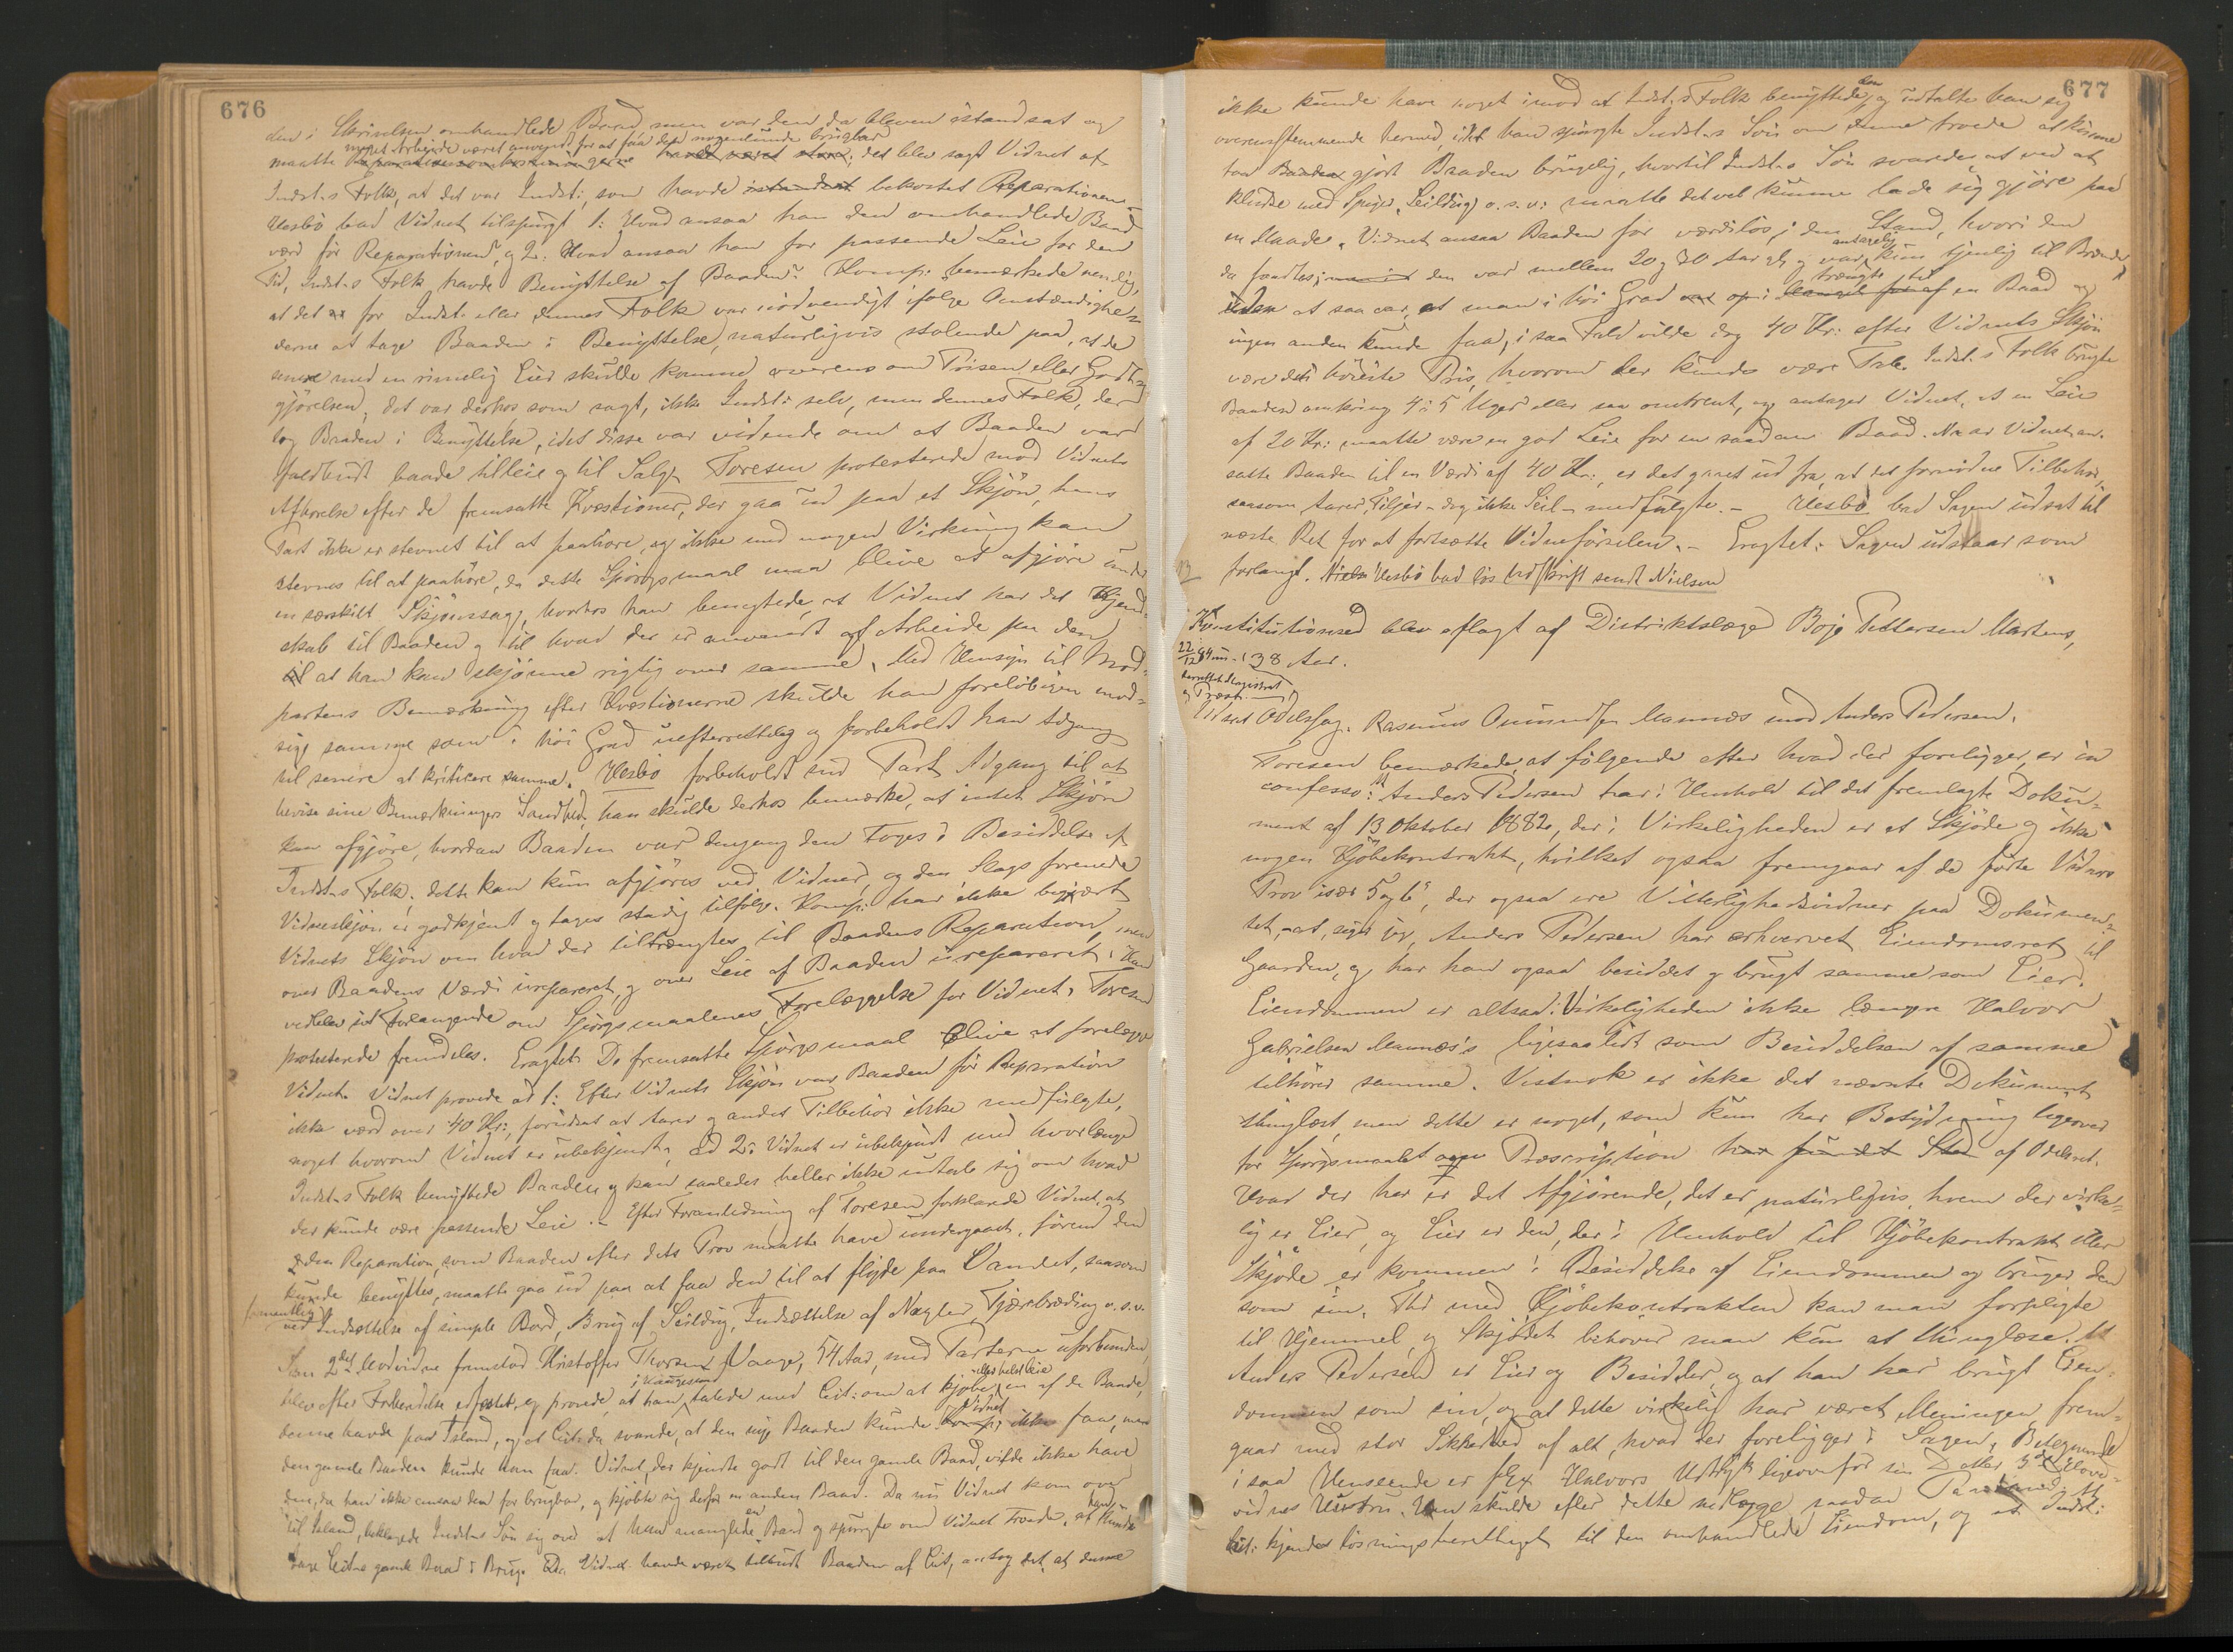 676
den i Skrivelsen omhandlede Baad, men var den da bleven istandsat og
meget Arbeide været anvendt for at faa den nogenlunde brugbar
maatte Reparationsomkostningerne havde været store; det blev sagt Vidnet af
Indst.s Folk, at det var Indst:, som havde istandsat bekostet Reparationen.
Uesbø bad Vidnet tilspurgt 1: Hvad ansaa han den omhandlede Baad
værd før Reparationen, og 2. Hvad ansaa han for passende Leie for den
Tid, Indst.s Folk havde Benyttelse af Baaden? Komp: bemærkede nemlig,
at det for Indst. eller dennes Folk var nødvendigt ifølge Omstændighe-
derne at tage Baaden i Benyttelse, naturligvis stolende paa, at de
senere med en rimelig Eier skulde komme overens om Prisen eller Godt-
gjørelsen; det var derhos som sagt, ikke Indst: selv, men dennes Folk, der
tog Baaden i Benyttelse, idet disse var vidende om at Baaden var
falbudt baade tilleie og til Salg. Toresen protesterede mod Vidnets
Afhørelse efter de fremsatte Kvæstioner, der gaa ud paa et Skjøn, hans
Part ikke er stevnet til at paahøre, og ikke med nogen Virkning kan
stevnes til at paahøre, da dette Spørgsmaal maa blive at afgjøre under
en særskilt Skjønssag, hvorhos han benegtede, at Vidnet har det Kjend-
skab til Baaden og til hvad der er anvendt af Arbeide paa den
til at han kan skjønne rigtig over samme. Med Hensyn til Mod-
partens Bemærkning efter Kvæstionerne skulde han foreløbigen mod-
sige samme som i høi Grad uefterrettelig og forbeholdt han Adgang
til senere at kritisere samme. Uesbø forbeholdt sin Part Adgang til at
bevise sine Bemærkningers Sandhed; han skulde derhos bemærke, at intet Skjøn
kan afgjøre, hvordan Baaden var dengang den toges i Besiddelse af
Indst.s Folk; dette kan kun afgjøres ved Vidner, og den Slags forenede
Vidneskjøn er godkjent og tages stadig tilfølge. Komp: har ikke begjært
Vidnets Skjøn om hvad der tiltrængtes til Baadens Reparation, men
over Baadens Værdi ureparert, og over Leie af Baaden ureparert. Han
vedblev sit Forlangende om Spørgsmaalenes Forelæggelse for Vidnet. Toresen
protesterede fremdeles. Eragtet: De fremsatte Spørgsmaal blive at forelægge
Vidnet. Vidnet provede ad 1: Efter Vidnets Skjøn var Baaden før Reparation
ikke værd over 40 Kr:, forudsat at Aarer og andet Tilbehør ikke medfulgte,
noget hvorom Vidnet er ubekjendt. Ad 2: Vidnet er ubekjendt med hvorlænge
Indst.s Folk benyttede Baaden og kan saaledes heller ikke udtale sig om hvad
der kunde være passende Leie. – Efter Foranledning af Toresen forklarede Vidnet, at
den Reparation, som Baaden efter dets Prov maatte have undergaaet, førend den
kunde benyttes, maatte gaa ud paa at faa den til at flyde paa Vandet, saasom
formentlig
ved Indsættelse af simple Bord, Brug af Seildug, Indsættelse af Nagler, Tjærebræding o.s.v.
Som 2det Modvidne fremstod Kristoffer Thorsen Vaage, 54 Aar, med Parterne uforbunden,
i Haugesund
eller helst leie
blev efter Forberedelse edfæstet, og provede, at han talede med Cit: om at kjøbe en af de Baade,
Vidnet
denne havde paa Island, og at Cit: da svarede, at den nye Baaden kunde ikke faa, men
den gamle Baaden kunde han faa. Vidnet, der kjendte godt til den gamle Baad, vilde ikke have
den, da han ikke ansaa den for brugbar, og kjøbte sig derfor en anden Baad. Da nu Vidnet kom over
til Island, beklagede Indst.s Søn sig over at han manglede en Baad og spurgte om Vidnet troede, at han kunde
tage Cit.s gamle Baad i Brug. Da Vidnet havde været tilbudt Baaden af Cit, antog det, at denne
677
ikke kunde have noget imod at Indst.s Folk benyttede den, og udtalte han sig
overensstemmende hermed, idet han spurgte Indst.s Søn om denne troede at kunne
faa Baaden gjort Baaden brugelig, hvortil Indst.s Søn svarede at ved at
kludre med Spiger, Seildug o.s.v. maatte det vel kunne lade sig gjøre paa
en Maade. Vidnet ansaa Baaden for værdiløs i den Stand, hvori den
da fandtes; den var mellem 20 og 30 Aar gl. og var antagelig kun tjenlig til Brænde,
trængte til
uden at saa var, at man i høi Grad en Baad og
ingen anden kunde faa; i saa Fald vilde dog 40 Kr: efter Vidnets Skjøn
være den høieste Pris, hvorom der kunde være Tale. Indst.s Folk brugte
Baaden omkring 4 à 5 Uger eller saa omtrent, og antager Vidnet, at en Leie
af 20 Kr: maatte være en god Leie for en saadan Baad. Naar Vidnet an-
satte Baaden til en Værdi af 40 Kr:, er det gaaet ud fra, at det fornødne Tilbehør,
saasom Aarer, Tiljer – dog ikke Seil – medfulgte. – Uesbø bad Sagen udsat til
næste Ret for at fortsætte Vidneførselen. – Eragtet: Sagen udstaar som
forlangt. Uesbø bad løs Udskrift sendt Nielsen
Konstitutionsed blev aflagt af Distriktslæge Boje Pettersen Martens,
38 Aar.
Udsat Odelssag. Rasmus Amundsen Mannæs mod Anders Pedersen.
Toresen bemærkede, at følgende efter hvad der foreligger, er in
confesso: At Anders Pedersen har i Henhold til det fremlagte Doku-
ment af 13 Oktober 1882, der i Virkeligheden er et Skjøde og ikke
nogen Kjøbekontrakt, hvilket ogsaa fremgaar af de førte Vidners
Prov især 5 og 6, der ogsaa ere Vitterlighedsvidner paa Dokumen-
tet, – at, siger jeg, Anders Pedersen har erhvervet Eiendomsret til
Gaarden, og har han ogsaa besiddet og brugt samme som Eier.
Eiendommen er altsaa i Virkeligheden ikke længre Halvor
Gabrielsen Mannæs's ligesaalidt som Besiddelsen af samme
tilhører samme. Vistnok er ikke det nævnte Dokument
thinglæst, men dette er noget, som kun har Betydning ligeover-
for Spørgsmaalet om Præscription har fundet Sted af Odelsret.
Hvad der her er det Afgjørende, det er naturligvis, hvem der virke-
lig er Eier, og Eier er den, der i Henhold til Kjøbekontrakt eller
Skjøde er kommen i Besiddelse af Eiendommen og bruger den
som sin. Thi med Kjøbekontrakten kan man forpligte
til Hjemmel, og Skjødet behøver man kun at thinglæse. At
Anders Pedersen er Eier og Besidder, og at han har brugt Eien-
dommen som sin, og at dette virkelig har været Meningen, frem-
gaar med stor Sikkerhed af alt, hvad der foreligger i Sagen. Betegnende
i saa Henseende er Halvors Udtryk ligeoverfor sin Datter, 3die Hoved-
vidnes Hustru. Han skulde efter dette nedlægge saadan Paastand: At
Cit: kjendes løsningsberettiget til den omhandlede Eiendom, og at Indst: